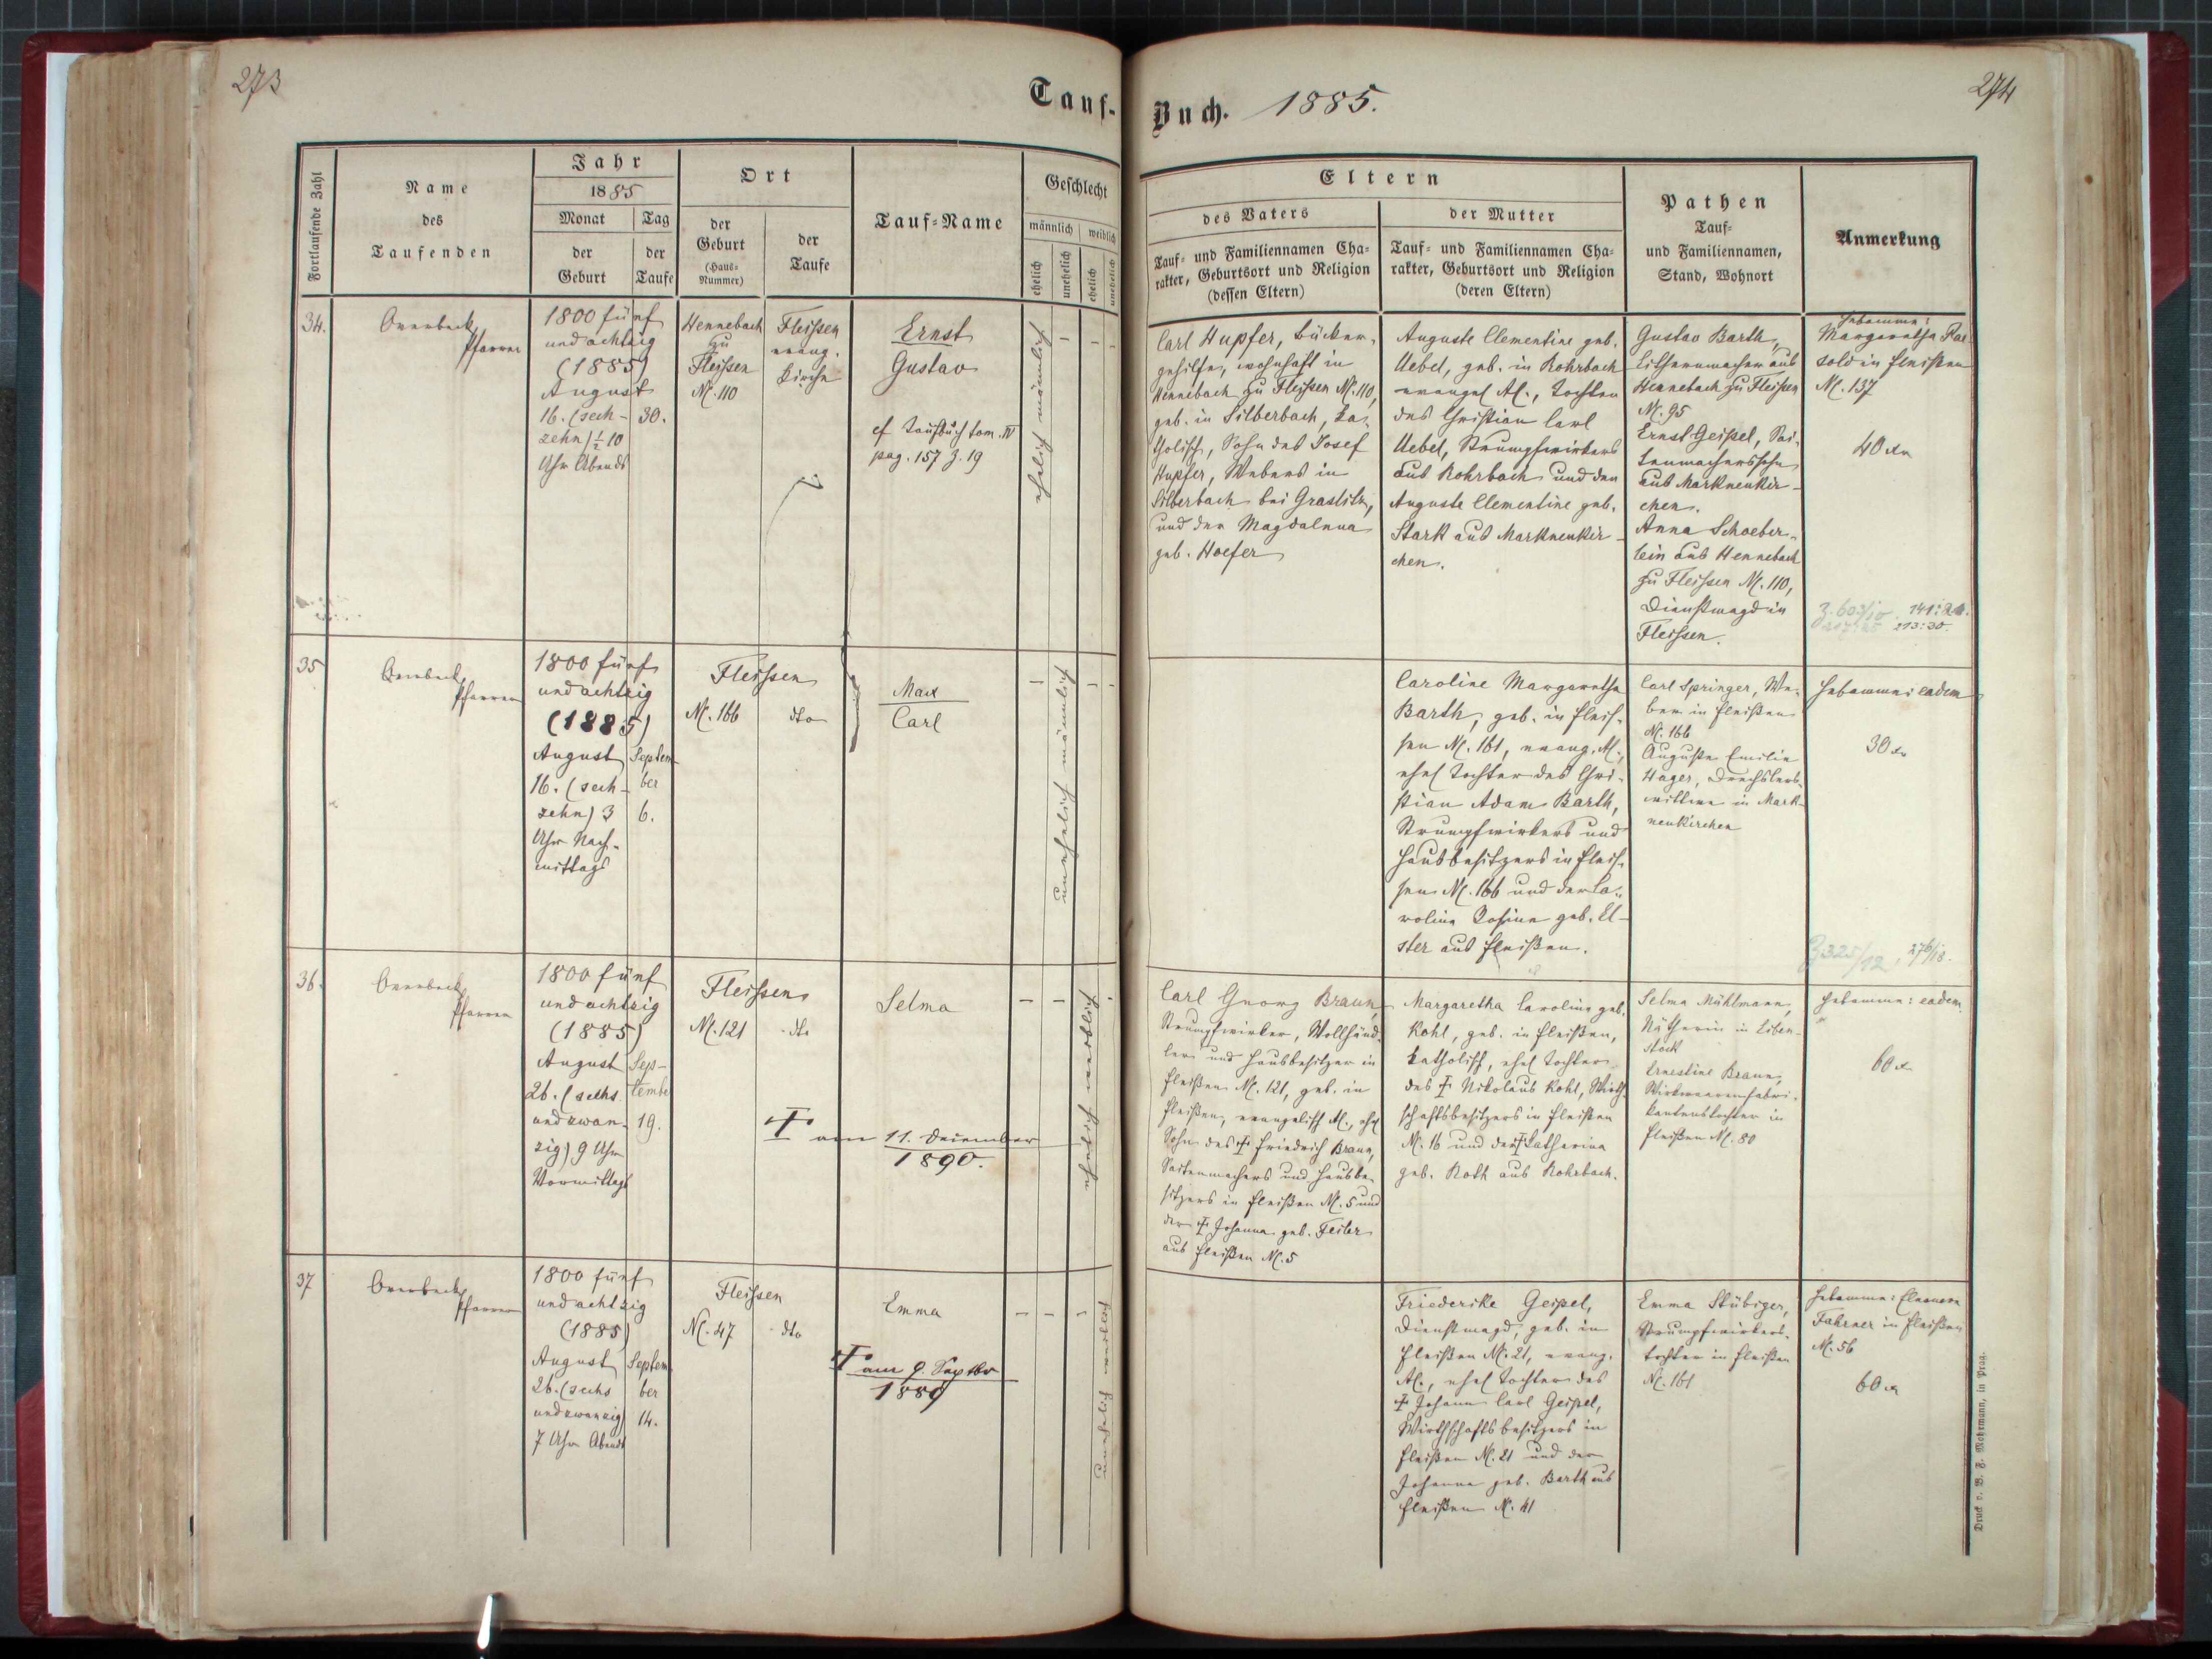 273
Tauf-
Buch. 1885.
274
Fortlaufende Zahl
Name
des
Taufenden
Jahr
1885
Monat
Tag
der
Geburt
der
Taufe
Ort
der
Geburt
(Haus-
Nummer)
der
Taufe
Tauf-Name
Geschlecht
männlich
weiblich
ehelich
unehelich
ehelich
unehelich
Eltern
des Vaters
Tauf- und Familiennamen Cha-
rakter, Geburtsort und Religion
(dessen Eltern)
der Mutter
Tauf- und Familiennamen Cha-
rakter, Geburtsort und Religion
(deren Eltern)
Pathen
Tauf-
und Familiennamen,
Stand, Wohnort
Anmerkung
34.
Overbeck
Pfarrer
1800 fünf
und achtzig
(1885)
August
16. (sech-
zehn) ½ 10
Uhr Abends
30.
Hennebach
zu
Fleissen
N. 110
Fleissen
evang.
Kirche
Ernst
Gustav
cf Taufbuch tom. IV
pag. 157 Z. 19
ehelich männlich
Carl Hupfer, Bäcker-
gehilfe, wohnhaft in
Hennebach zu Fleissen N. 110,
geb. in Silberbach, ka-
tholisch, Sohn des Josef
Hupfer, Webers in
Silberbach bei Graslitz,
und der Magdalena
geb. Hoefer
Auguste Clementine geb.
Uebel, geb. in Rohrbach
evangel AC., Tochter
des Christian Carl
Uebel, Strumpfwirkers
aus Rohrbach und der
Auguste Clementine geb.
Stark aus Markneukir-
chen.
Gustav Barth,
aus
Hennebach zu Fleissen
N. 95
Ernst Geipel, Sai-
tenmacherssohn
aus Markneukir-
chen.
Anna Schoeber-
lein aus Hennebach
zu Fleissen N. 110,
Dienstmagd in
Fleissen.
Hebamme:
Margaretha
in Fleissen
N. 137
40 xr
141:24.
213:30.
35
Overbeck
Pfarrer
1800 fünf
und achtzig
(1885)
August
16. (sech-
zehn) 3
Uhr Nach-
mittags
Septem-
ber
6.
Fleissen
N. 166
dto
Max
Carl
unehelich männlich
Caroline Margaretha
Barth, geb. in Fleis-
sen N. 161, evang. AC.,
ehel Tochter des Chri-
stian Adam Barth,
Strumpfwirkers und
Hausbesitzers in Fleis-
sen N. 166 und der Ca-
roline Rosine geb. El-
ster aus Fleißen.
Carl Springer, We-
ber in Fleißen
N. 166
Auguste Emilie
Hager, Drechslers-
wittwe in Mark-
neukirchen
Hebamme: eadem
30 xr
Z 325/12, 276/18.
36.
Overbeck
Pfarrer
1800 fünf
und achtzig
(1885)
August
26. (sechs
und zwan-
zig) 9 Uhr
Vormittags
Sep-
tember
19.
Fleissen
N. 121
dto
Selma
† am 11. Dezember
1890.
ehelich weiblich
Carl Georg Braun,
Strumpfwirker, Wollhänd-
ler und Hausbesitzer in
Fleißen N. 121, geb. in
Fleißen, evangelisch AC., ehel
Sohn des † Friedrich Braun,
Saitenmachers und Hausbe-
sitzers in Fleißen N. 5 und
der † Johanna geb. Feiler
aus Fleißen N. 5
Margaretha Caroline geb.
Kohl, geb. in Fleißen,
katholisch, ehel Tochter
des † Nikolaus Kohl, Wirth-
schaftsbesitzers in Fleißen
N. 16 und der † Catharina
geb. Roth aus Rohrbach.
Selma Mühlmann,
Nätherin in Eiben-
stock
Ernestine Braun,
Wirkwaarenfabri-
kantenstochter in
Fleißen N. 80
Hebamme: eadem
60 xr
37
Overbeck
Pfarrer
1800 fünf
und achtzig
(1885)
August
26. (sechs
und zwanzig)
7 Uhr Abends
Septem-
ber
14.
Fleissen
N. 47
dto
Emma
† am 9. Septbr
1889
unehelich weiblich
Friederike Geipel,
Dienstmagd, geb. in
Fleißen N. 21, evang.
AC., ehel Tochter des
† Johann Carl Geipel,
Wirthschaftsbesitzers in
Fleißen N. 21 und der
Johanna geb. Barth aus
Fleißen N. 41
Emma Stübiger,
Strumpfwirkers-
tochter in Fleißen
N. 161
Hebamme: Eleonora
Fahrner in Fleißen
N. 56
60 xr
Druck v. B. F. Mohrmann, in Prag.